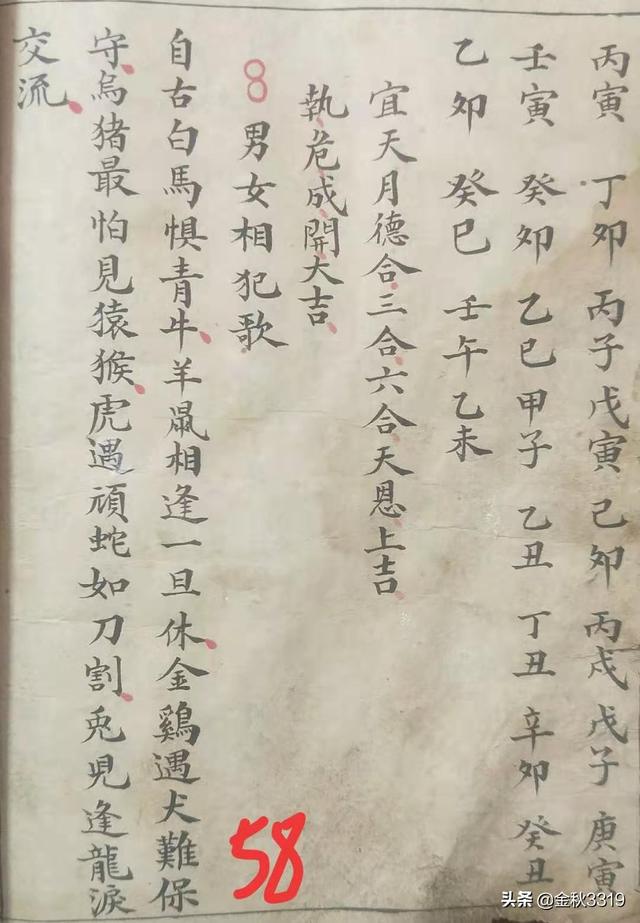 丙寅 丁卯 丙子 戊寅 己卯 丙戌 戊子 庚寅
壬寅 癸卯 乙巳 甲子 乙丑 丁丑 辛卯 癸丑
乙卯 癸巳 壬午 乙未
宜天月德合三合六合天恩上吉
執危成開大吉
8 男女相犯歌
自古白馬懼青牛羊鼠相逢一旦休金鷄遇犬難保
守烏猪最怕見猿猴虎遇頑蛇如刀割兎児逢龍淚
交流
58
头条 @金秋3319